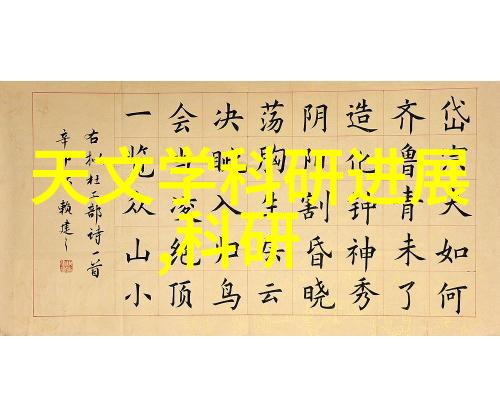 天文学科研进展
,科研
岱宗夫如何
齐鲁青未了
造化钟神秀
阴阳割昏晓
荡胸生层云
决眦入归鸟
会当凌绝顶
一览众山小
右抄杜工部诗一首
辛 赖建